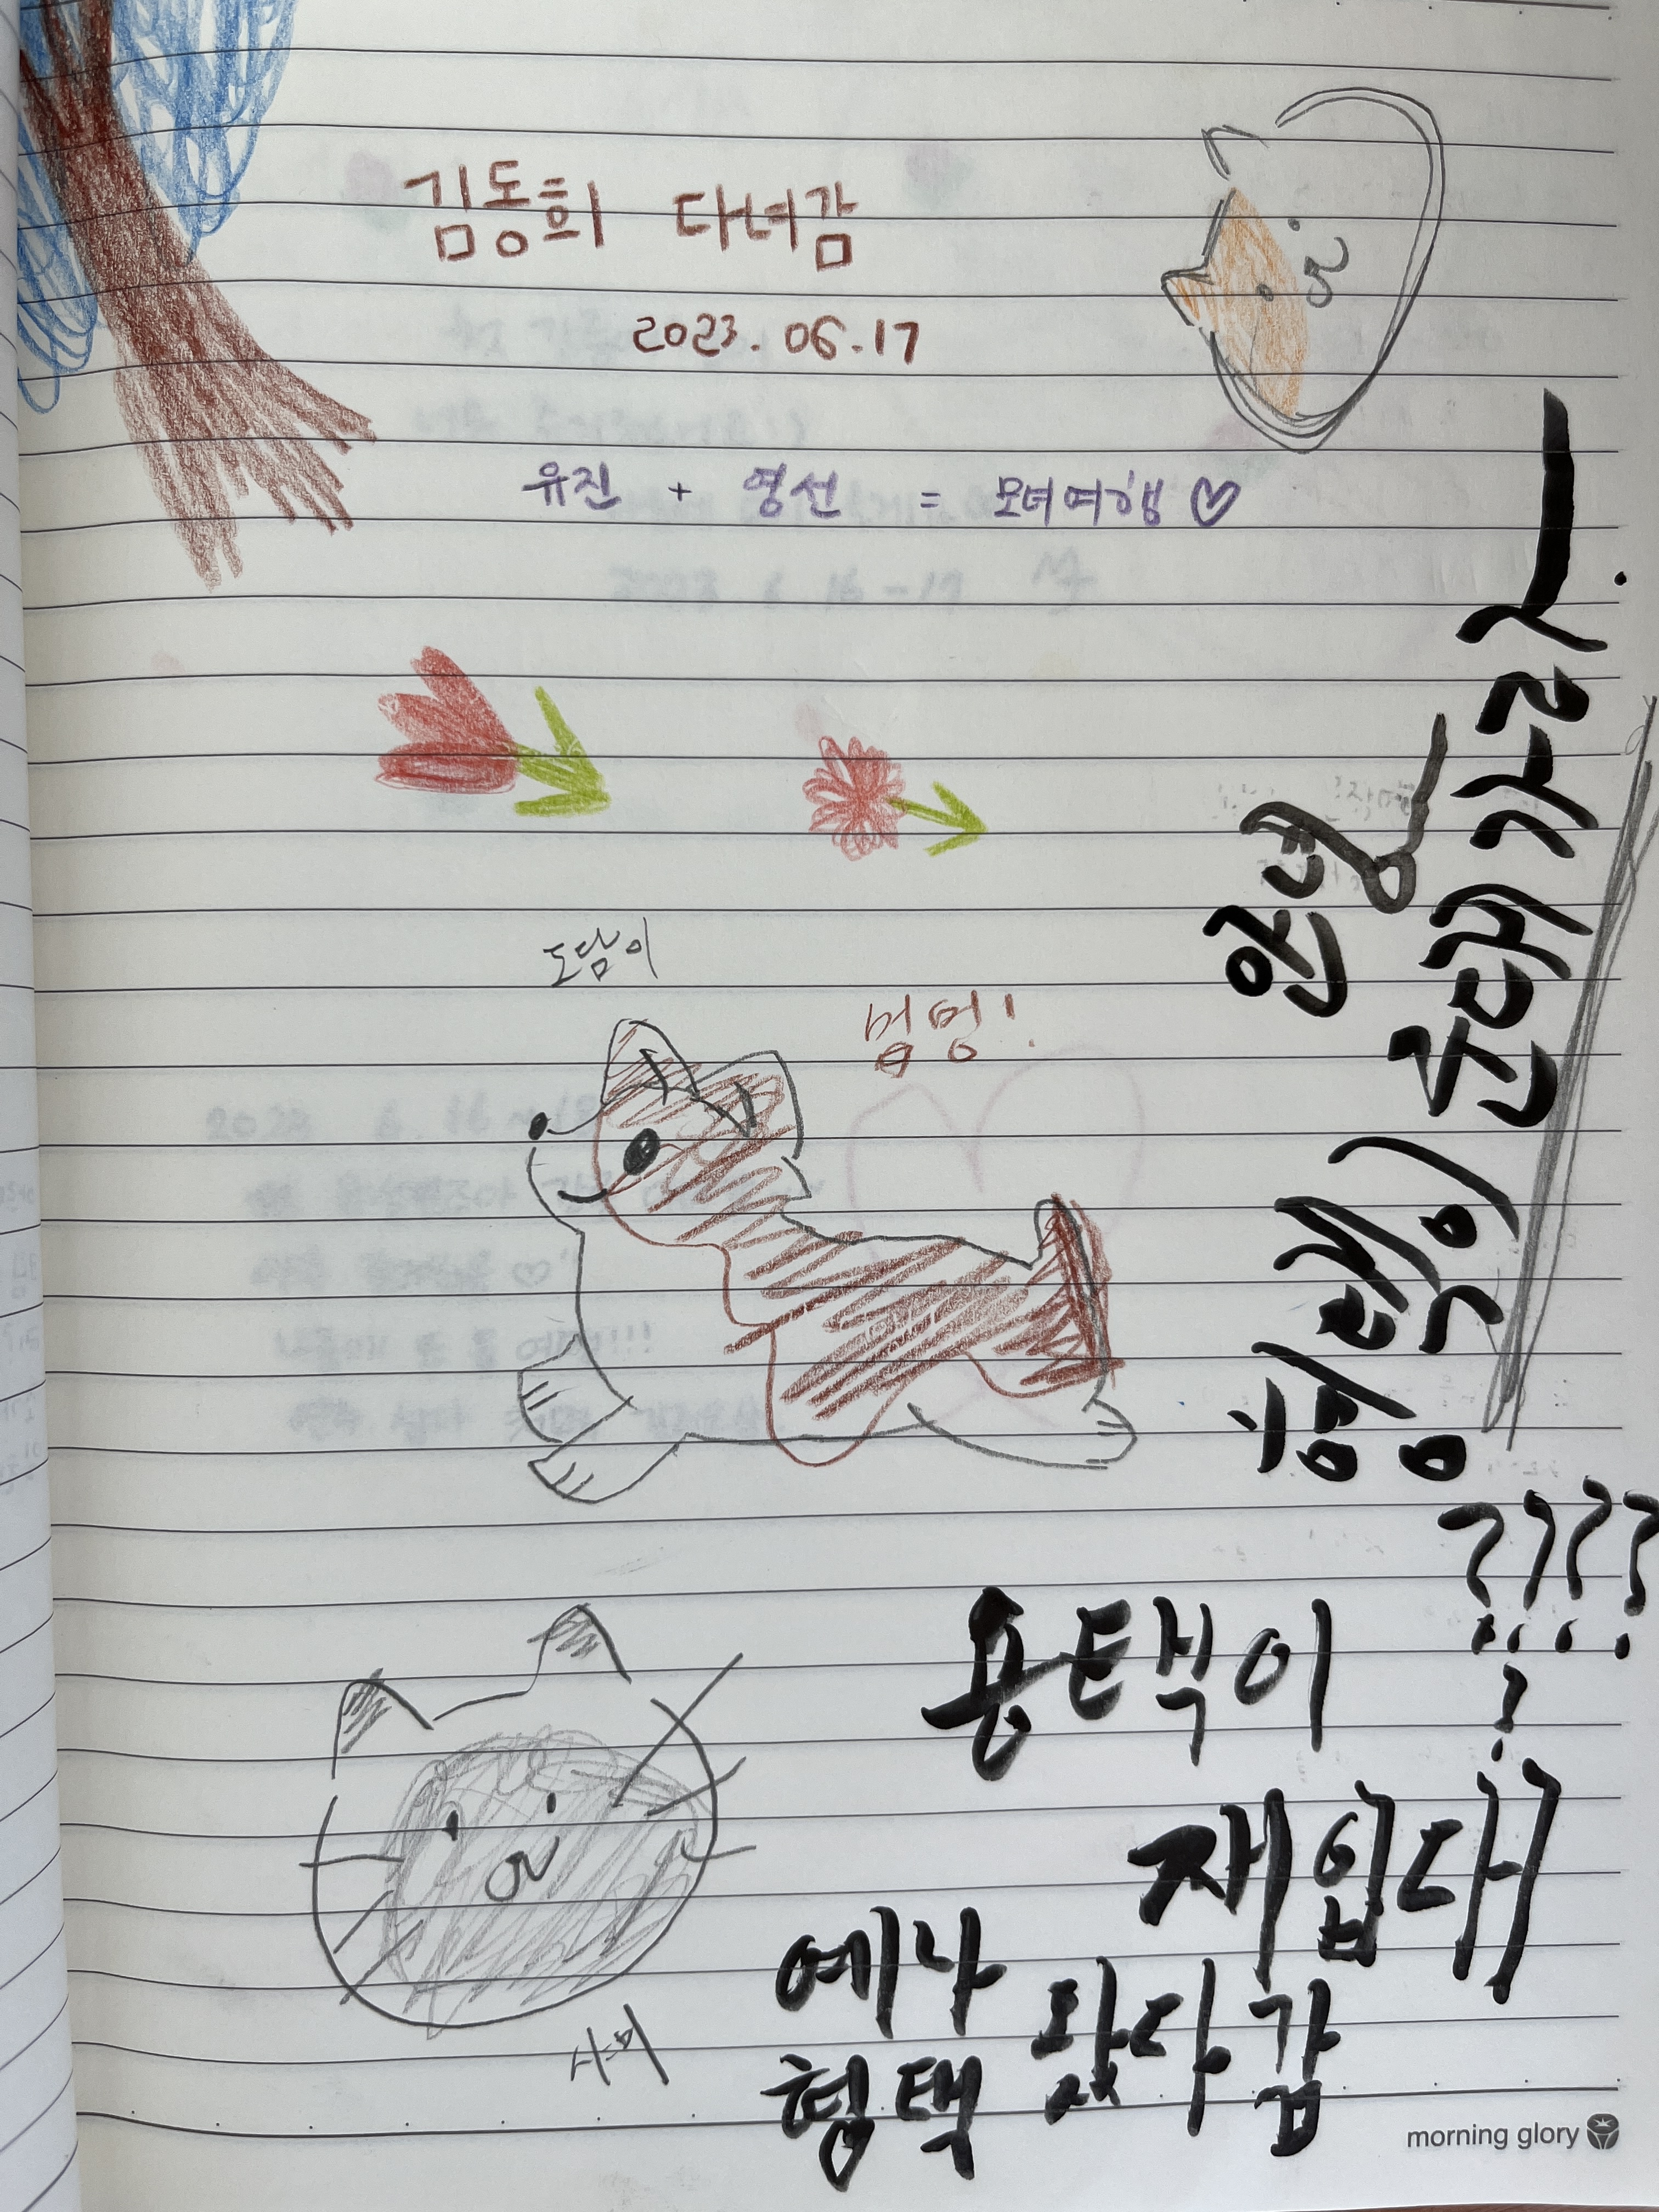 김동희 다녀감
2023.06.17
유진 + 영선 = 모녀여행♡
도담이
멈멍!
안녕
형택이 군대가라
????
용택이
?
재입대
예나
형택 왔다감
morning glory